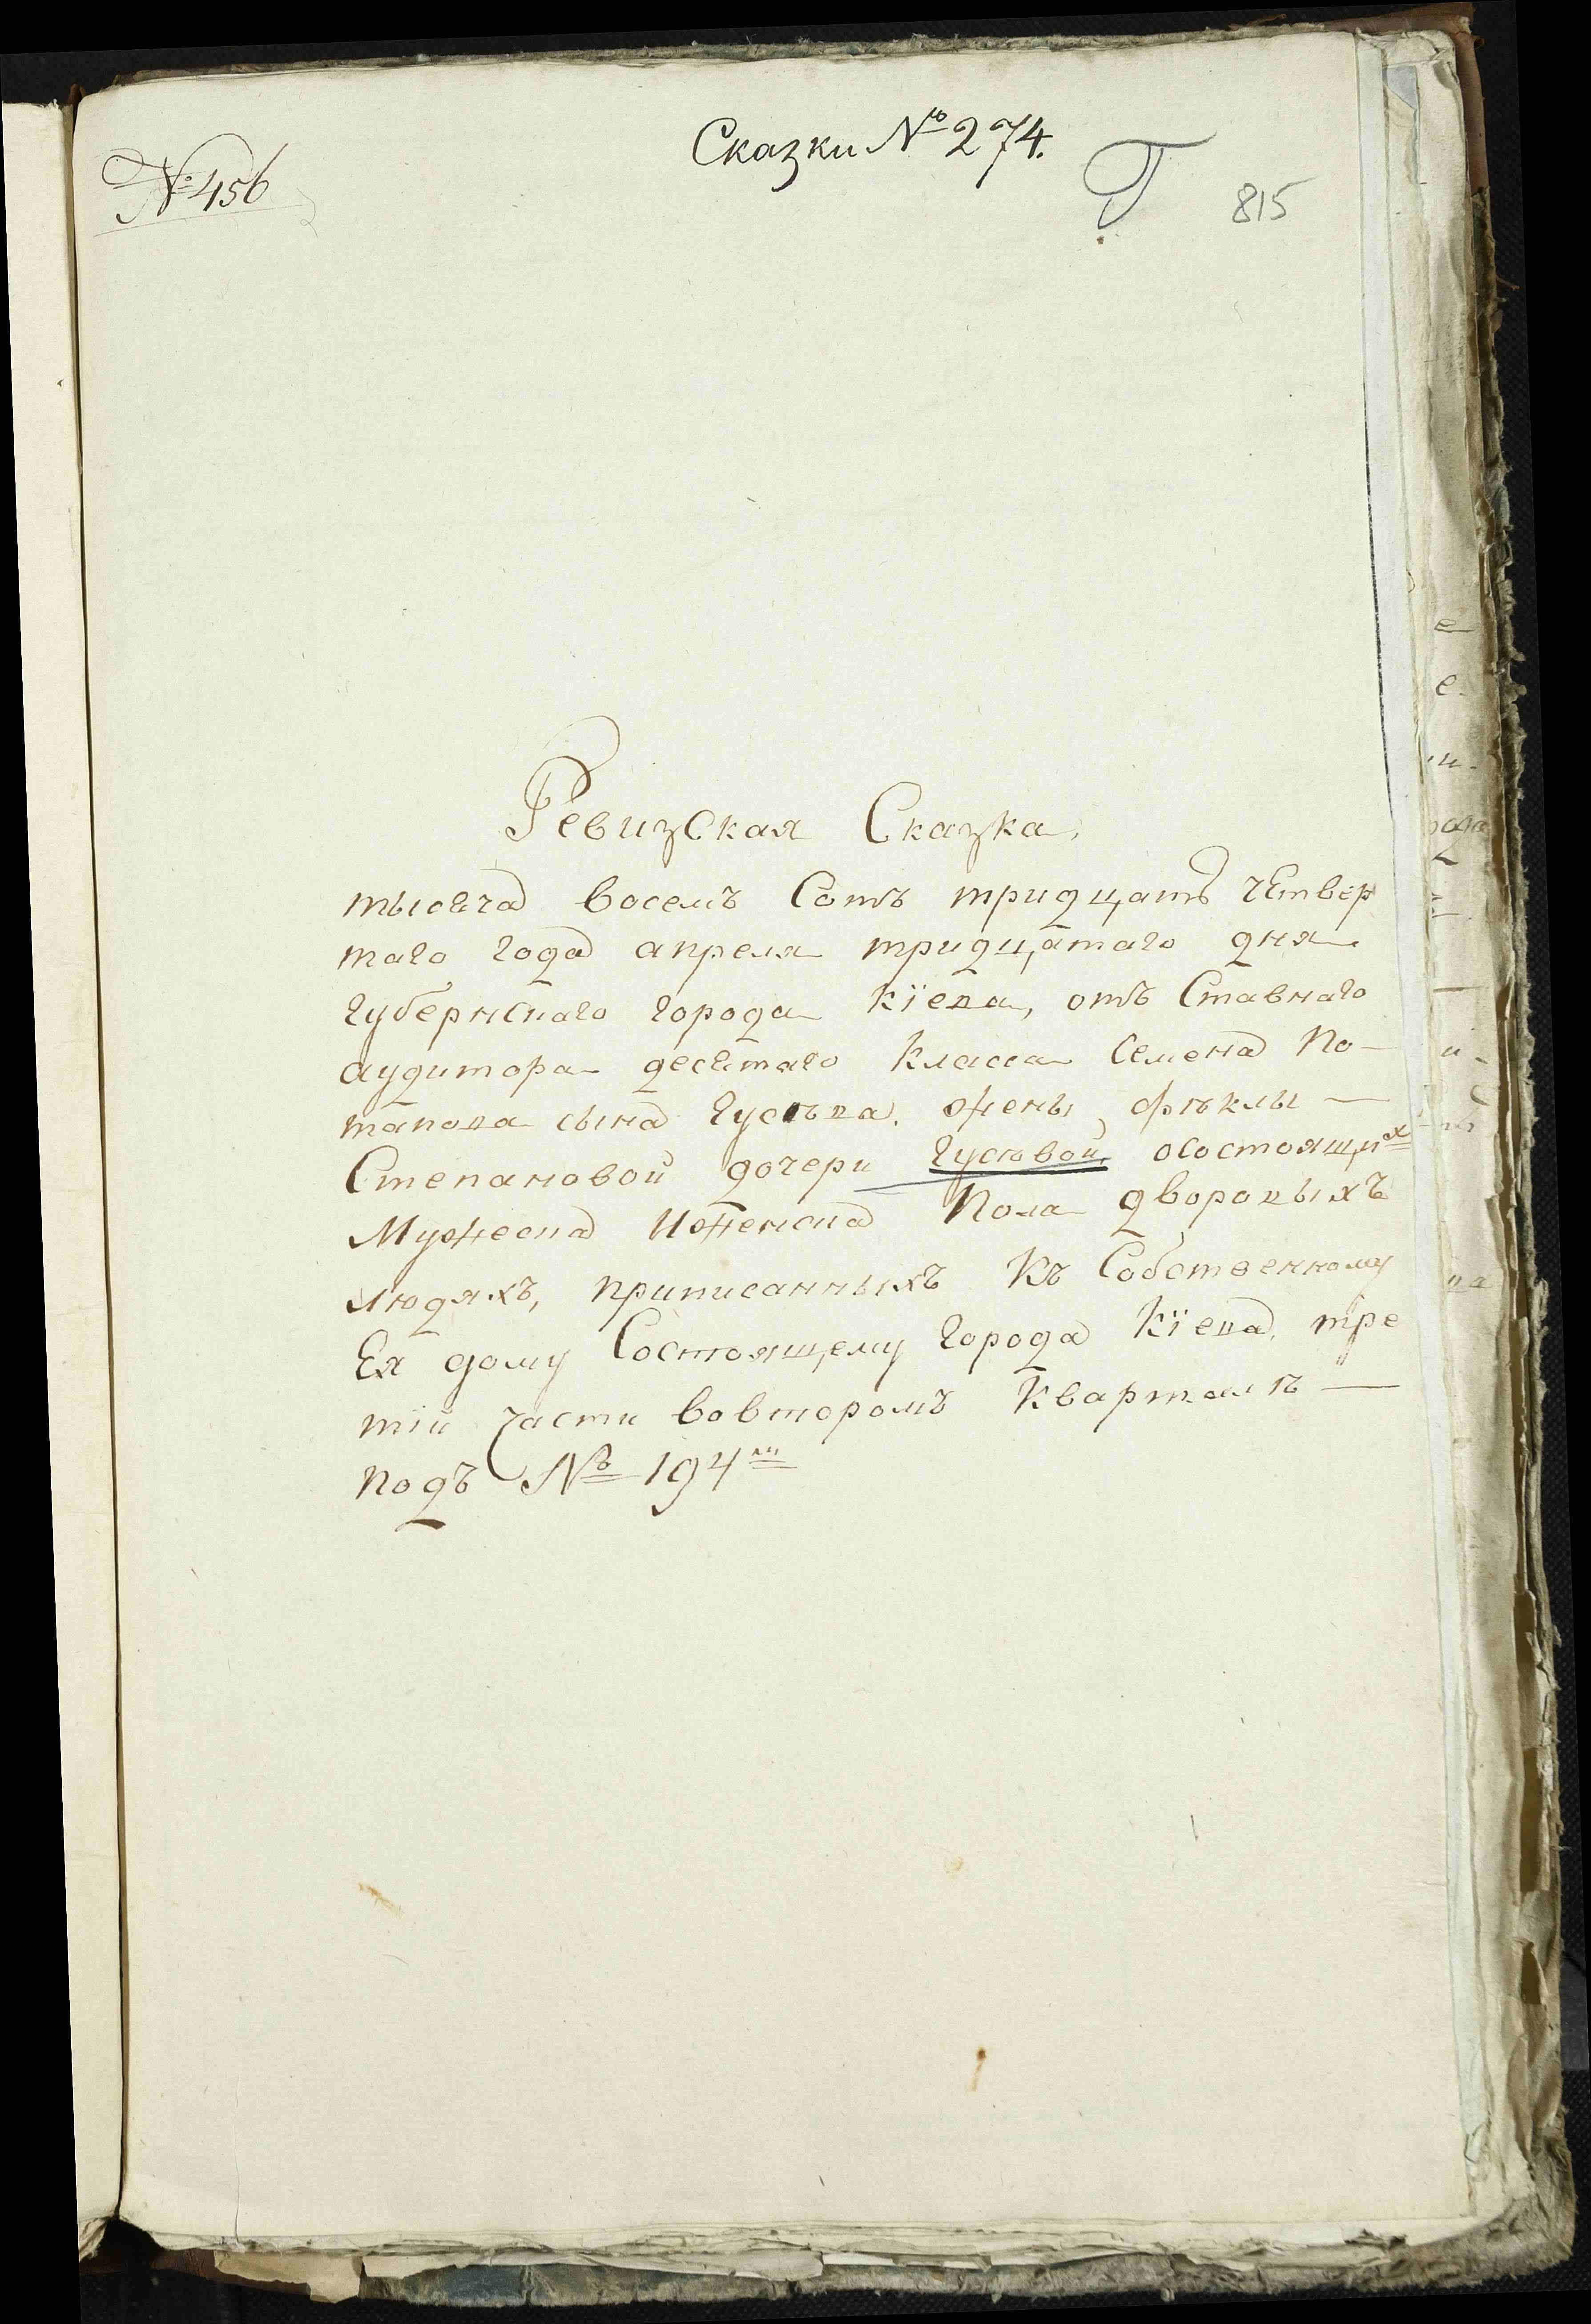 Сказки № 274.
№ 456
Г 815
Ревизская Сказка,
тысеча восемъ Сотъ тридцать четвер
таго года апреля тридцатаго дня
губернскаго города Кїева, отъ Ставнаго
аудитора десетаго класса Семена По-
тапова сына Гусѣва. жены, фѣклы —
Степановой дочери Гусѣвой, осостоящих
Мужеска Иженска Пола дворовыхъ
людяхъ, приписанныхъ Къ Собственному
Ея дому Состоящему города Кїева, тре
тїй части вовторомъ Кварталѣ —
подъ № 194м